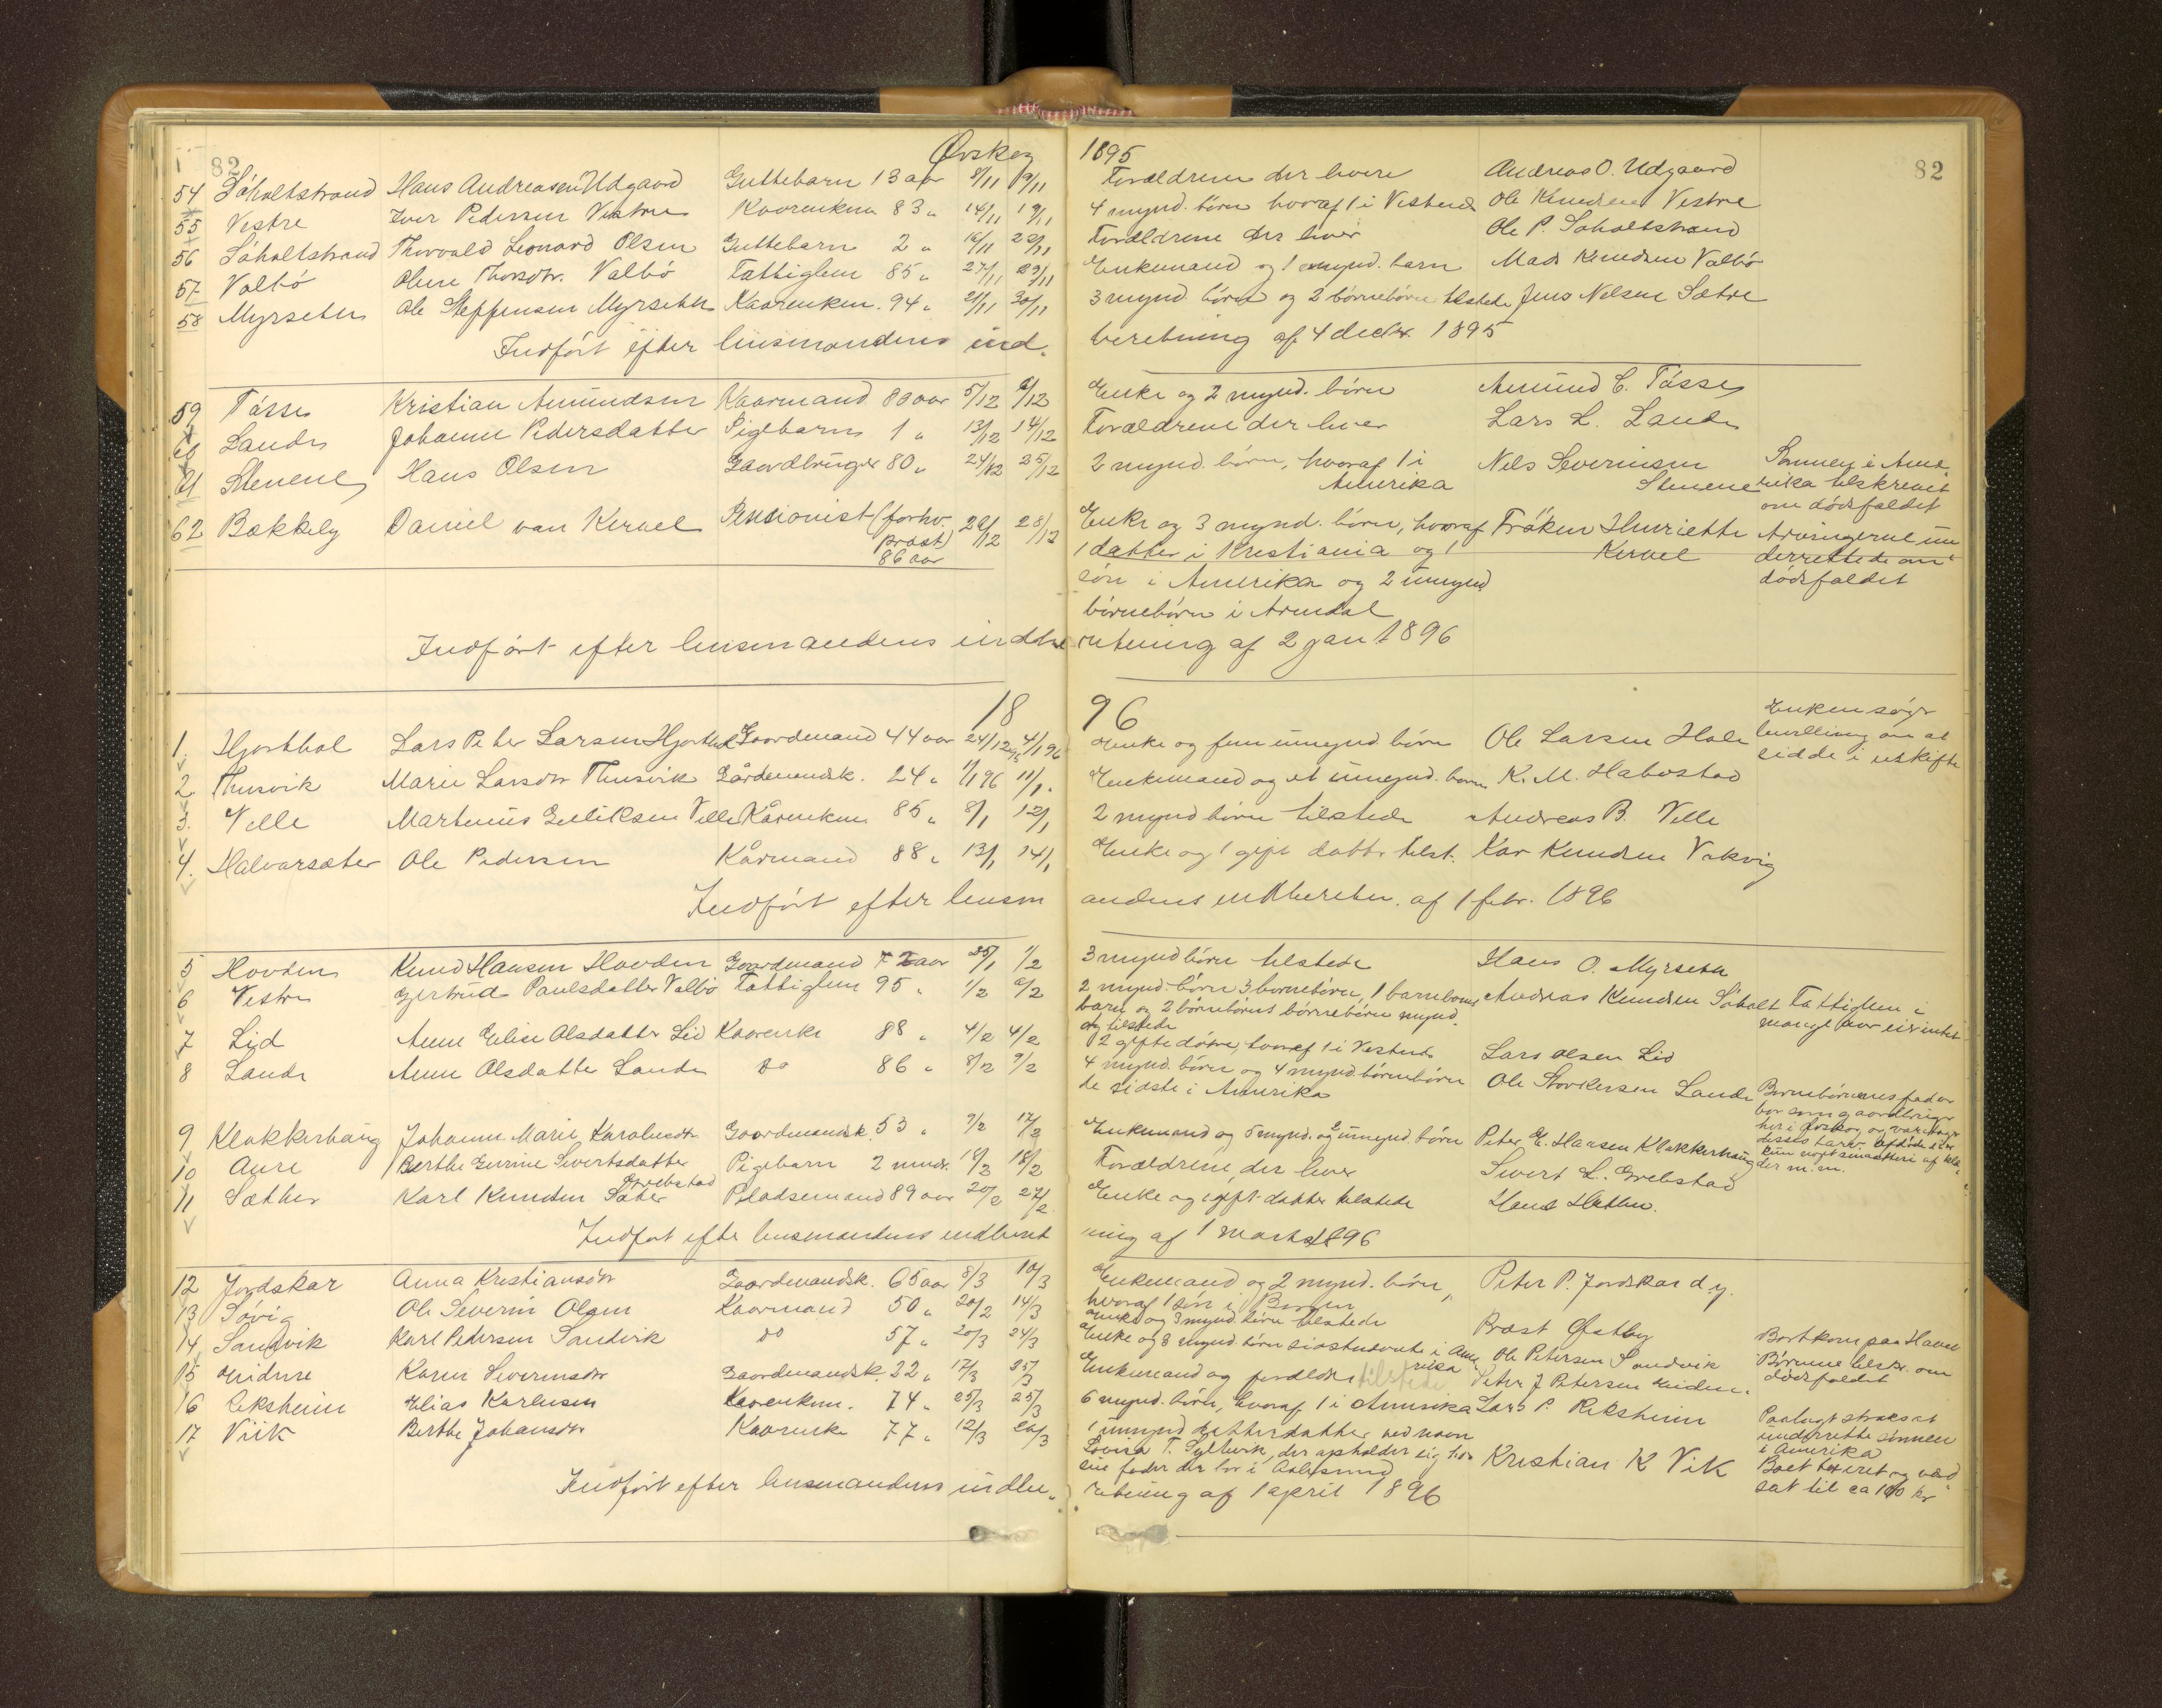 82
Ørskog
1895
82
54 Søholtstrand Hans Andreasen Udgaard Guttebarn 13 aar 8/11 19/11 Forældrene der lever Andreas O. Udgaard
55 Vestre Iver Pedersen Vestre Kaarenkem 83 " 14/11 19/11 4 mynd. børn hvoraf 1 i Vesterd Ole Knudsen Vestre
56 Søholtstrand Thorvald Leonard Olsen Guttebarn 2 " 16/11 20/11 Forældrene der lever Ole P. Søholtstrand
57 Valbø Oline Thorsdtr. Valbø Fattiglem 85 " 27/11 29/11 Enkemand og 1 mynd. barn Mads Knudsen Valbø
58 Myrseter Ole Steffensen Myrseter Kaarenkem. 94 " 21/11 30/11 3 mynd. børn og 2 børnebørn tilstede Jens Nelsen Sætre
Indført efter lensmandens ind.
beretning af 4 decbr. 1895
59 Tøsse Kristian Amundsen Kaarmand 80 aar 5/12 6/12 Enke og 2 mynd. børn Amund C. Tøsse
60 Lande Johanne Pedersdatter Pigebarn 1 " 13/12 14/12 Forældrene der lever Lars L. Lande
61 Stenene Hans Olsen Gaardbruger 80 " 24/12 25/12 2 mynd. børn, hvoraf 1 i Nels Severinsen Sønnen i Ame-
Amerika Stenene rika tilskrevet
om dødsfaldet
62 Bakkely Daniel van Kervel Pensionist (forhv. 22/12 28/12 Enke og 3 mynd. børn, hvoraf Frøken Henriette Arvingerne un-
prost) 1 datter i Kristiania og 1 Kervel derrettede om
86 aar søn i Amerika og 2 umynd. dødsfaldet
børnebørn i Arendal
Indført efter lensmandens indbe
retning af 2 jan 1896
18
96
1. Hjorthol Lars Peter Larsen Hjorthol Gaardmand 44 aar 24/12 95 4/1 96 Enke og fem umynd. børn Ole Larsen Hole Enken søger
bevilling om at
sidde i uskifte
2 Thusvik Marie Larsdtr Thusvik Gårdmandsk. 24 " 1/1 96 11/1. Enkemand og et umynd. barn K. M. Habostad
3. Velle Martinus Gulliksen Velle Kårenkem 85 " 8/1 12/1 2 mynd børn tilstede Andreas B. Velle
4. Halvarsæter Ole Pedersen Kårmand 88 " 13/1 14/1 Enke og 1 gift datter tilst. Kar Knudsen Vakvig
Indført efter lensm
andens indberetn. af 1 febr. 1896
5 Hovden Knud Hansen Hovden Gaardmand 72 aar 25/1 1/2 3 mynd børn tilstede Hans O. Myrseth
6 Vestre Gjertrud Paulsdatter Valbø Fattiglem 95 " 1/2 6/2 2 mynd. børn 3 børnebørn, 1 barnebarns Andreas Knudsen Søholt Fattiglem i
barn og 2 børnebørns børnebørn mynd.
og tilstede
7 Lid Anne Eline Olsdatter Lid Kaarenke 88 " 4/2 4/2 2 gifte døtre, hvoraf 1 i Vesterd. Lars Olsen Lid
8 Lande Anne Olsdatter Lande do 86 " 8/2 9/2 4 mynd. børn og 4 mynd. børnebørn Ole Storkersen Lande Børnebørnenes fader
de sidste i Amerika bor som gaardbruger
9 Klokkerhaug Johanne Marie Karolusdtr Gaardmandsk. 53 " 9/2 17/2 Enkemand og 5 mynd. og 2 umynd børn Peter E. Hansen Klokkerhaug
10 Aure Berthe Gurine Sivertsdatter Pigebarn 2 mndr. 16/2 18/2 Forældrene, der lever Sivert L. Grebstad der m.m.
Grebstad
11 Sæther Karl Knudsen Sæter Pladsemand 89 aar 20/2 27/2 Enke og 1 gift datter tilstede Hans Hatlen.
Indført efter lensmandens indberet
ning af 1 marts 1896
12 Jordskar Anna Kristiansdtr Gaardmandsk. 65 aar 8/3 10/3 Enkemand og 2 mynd. børn, Peter P. Jordskar d.y.
hvoraf 1 søn i Bergen
13 Søvig Ole Severin Olsen Kaarmand 50 " 20/2 14/3 Enke og 3 mynd. børn tilstede Prost Østby
14 Sandvik Karl Petersen Sandvik do 57 " 20/3 24/3 Enke og 8 mynd børn sidstnævnte i Ame- Ole Petersen Sandvik Bortkom paa Havet
rika Børnene tilskr. om
dødsfaldet
15 Karen Severinsdtr Gaardmandsk. 22 " 17/3 25/3 Enkemand og forældre tilstede Peter J Petersen
16 Reksheim Elias Karlusen Kaarenkem. 74 " 25/3 25/3 6 mynd. børn, hvoraf 1 i Amerika Lars P. Reksheim Paalagt straks at
underrette sønnen
i Amerika
17 Viik Berthe Johansdtr Kaarenke 77 " 12/3 26/3 1 umynd datterdatter ved navn
Lovisa T. Sylvik, der opholder sig hos Kristian K Vik Boet taxeret og værd
sin fader der bor i Aalesund sat til ca 100 kr
Indført efter lensmandens indbe-
retning af 1 april 1896